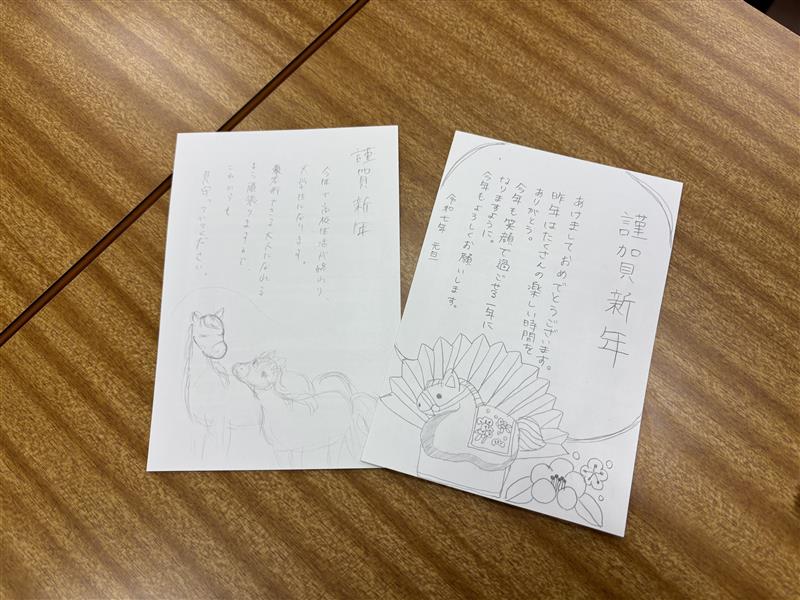 謹賀新年
今年で高校生活が終わり、
大学生になります。
尊敬できる大人になれる
よう頑張りますので
これからも
見守っていてください。
謹加貝新年
あけましておめでとうございます。
昨年はたくさんの楽しい時間を
ありがとう。
今年も笑顔で過ごせる一年に
なりますように。
今年もよろしくお願いします。
令和七年 元旦